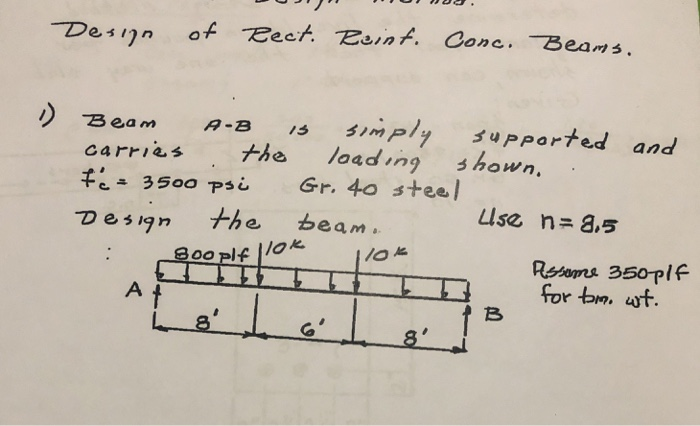 Design of Rect. Reinf. Conc. Beams.
1) Beam A-B is simply supported and
carries the loading shown.
f'c = 3500 psi Gr. 40 steel
Design the beam. Use n = 8.5
800 plf 10k 10k
Assume 350 plf
for bm. wt.
A
B
8' 6' 8'